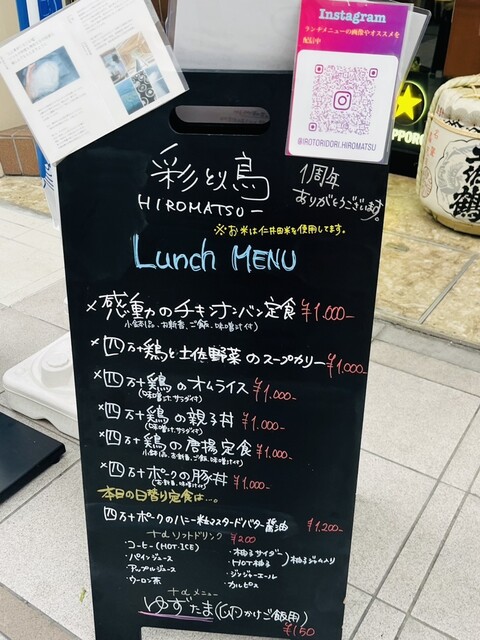 Instagram
ランチメニューの画像やオススメを
配信中
@IROTORIDORI.HIROMATSU
PPORO
彩とり鳥
HIROMATSU
1周年
ありがとうございます。
※お米は仁井田米を使用してます。
Lunch MENU
×感動のチキンナンバン定食 ¥1.000-
小鉢1品、お新香、ご飯、味噌汁付)
×四万十鶏と土佐野菜のスープカリー ¥1.000-
×四万十鶏のオムライス ¥1.000-
(味噌汁、サラダ付)
×四万十鶏の親子丼 ¥1.000-
(味噌汁、サラダ付)
×四万十鶏の唐揚定食 ¥1.000-
小鉢1品、お新香、ご飯、味噌汁付)
×四万十ポークの豚丼 ¥1.000-
(お新香、味噌汁付)
本日の日替り定食は…。
四万十ポークのハニー粒マスタードバター醤油 ¥1.200-
+αソフトドリンク ¥200
・コーヒー(HOT・ICE)
・パインジュース
・アップルジュース
・ウーロン茶
・柚子サイダー
・HOT柚子
柚子ジャム入り
・ジンジャーエール
・カルピス
+αメニュー
ゆずたま(卵かけご飯用)
¥150